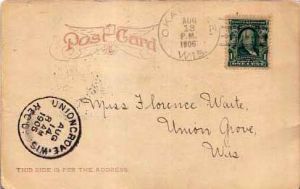 Post Card
OKA
AUG
13
P.M.
1905
WIS.
Miss Florence Waite,
Union Grove,
Wis
UNION GROVE, WIS.
AUG
14
1905
REC'D.
THIS SIDE IS FOR THE ADDRESS